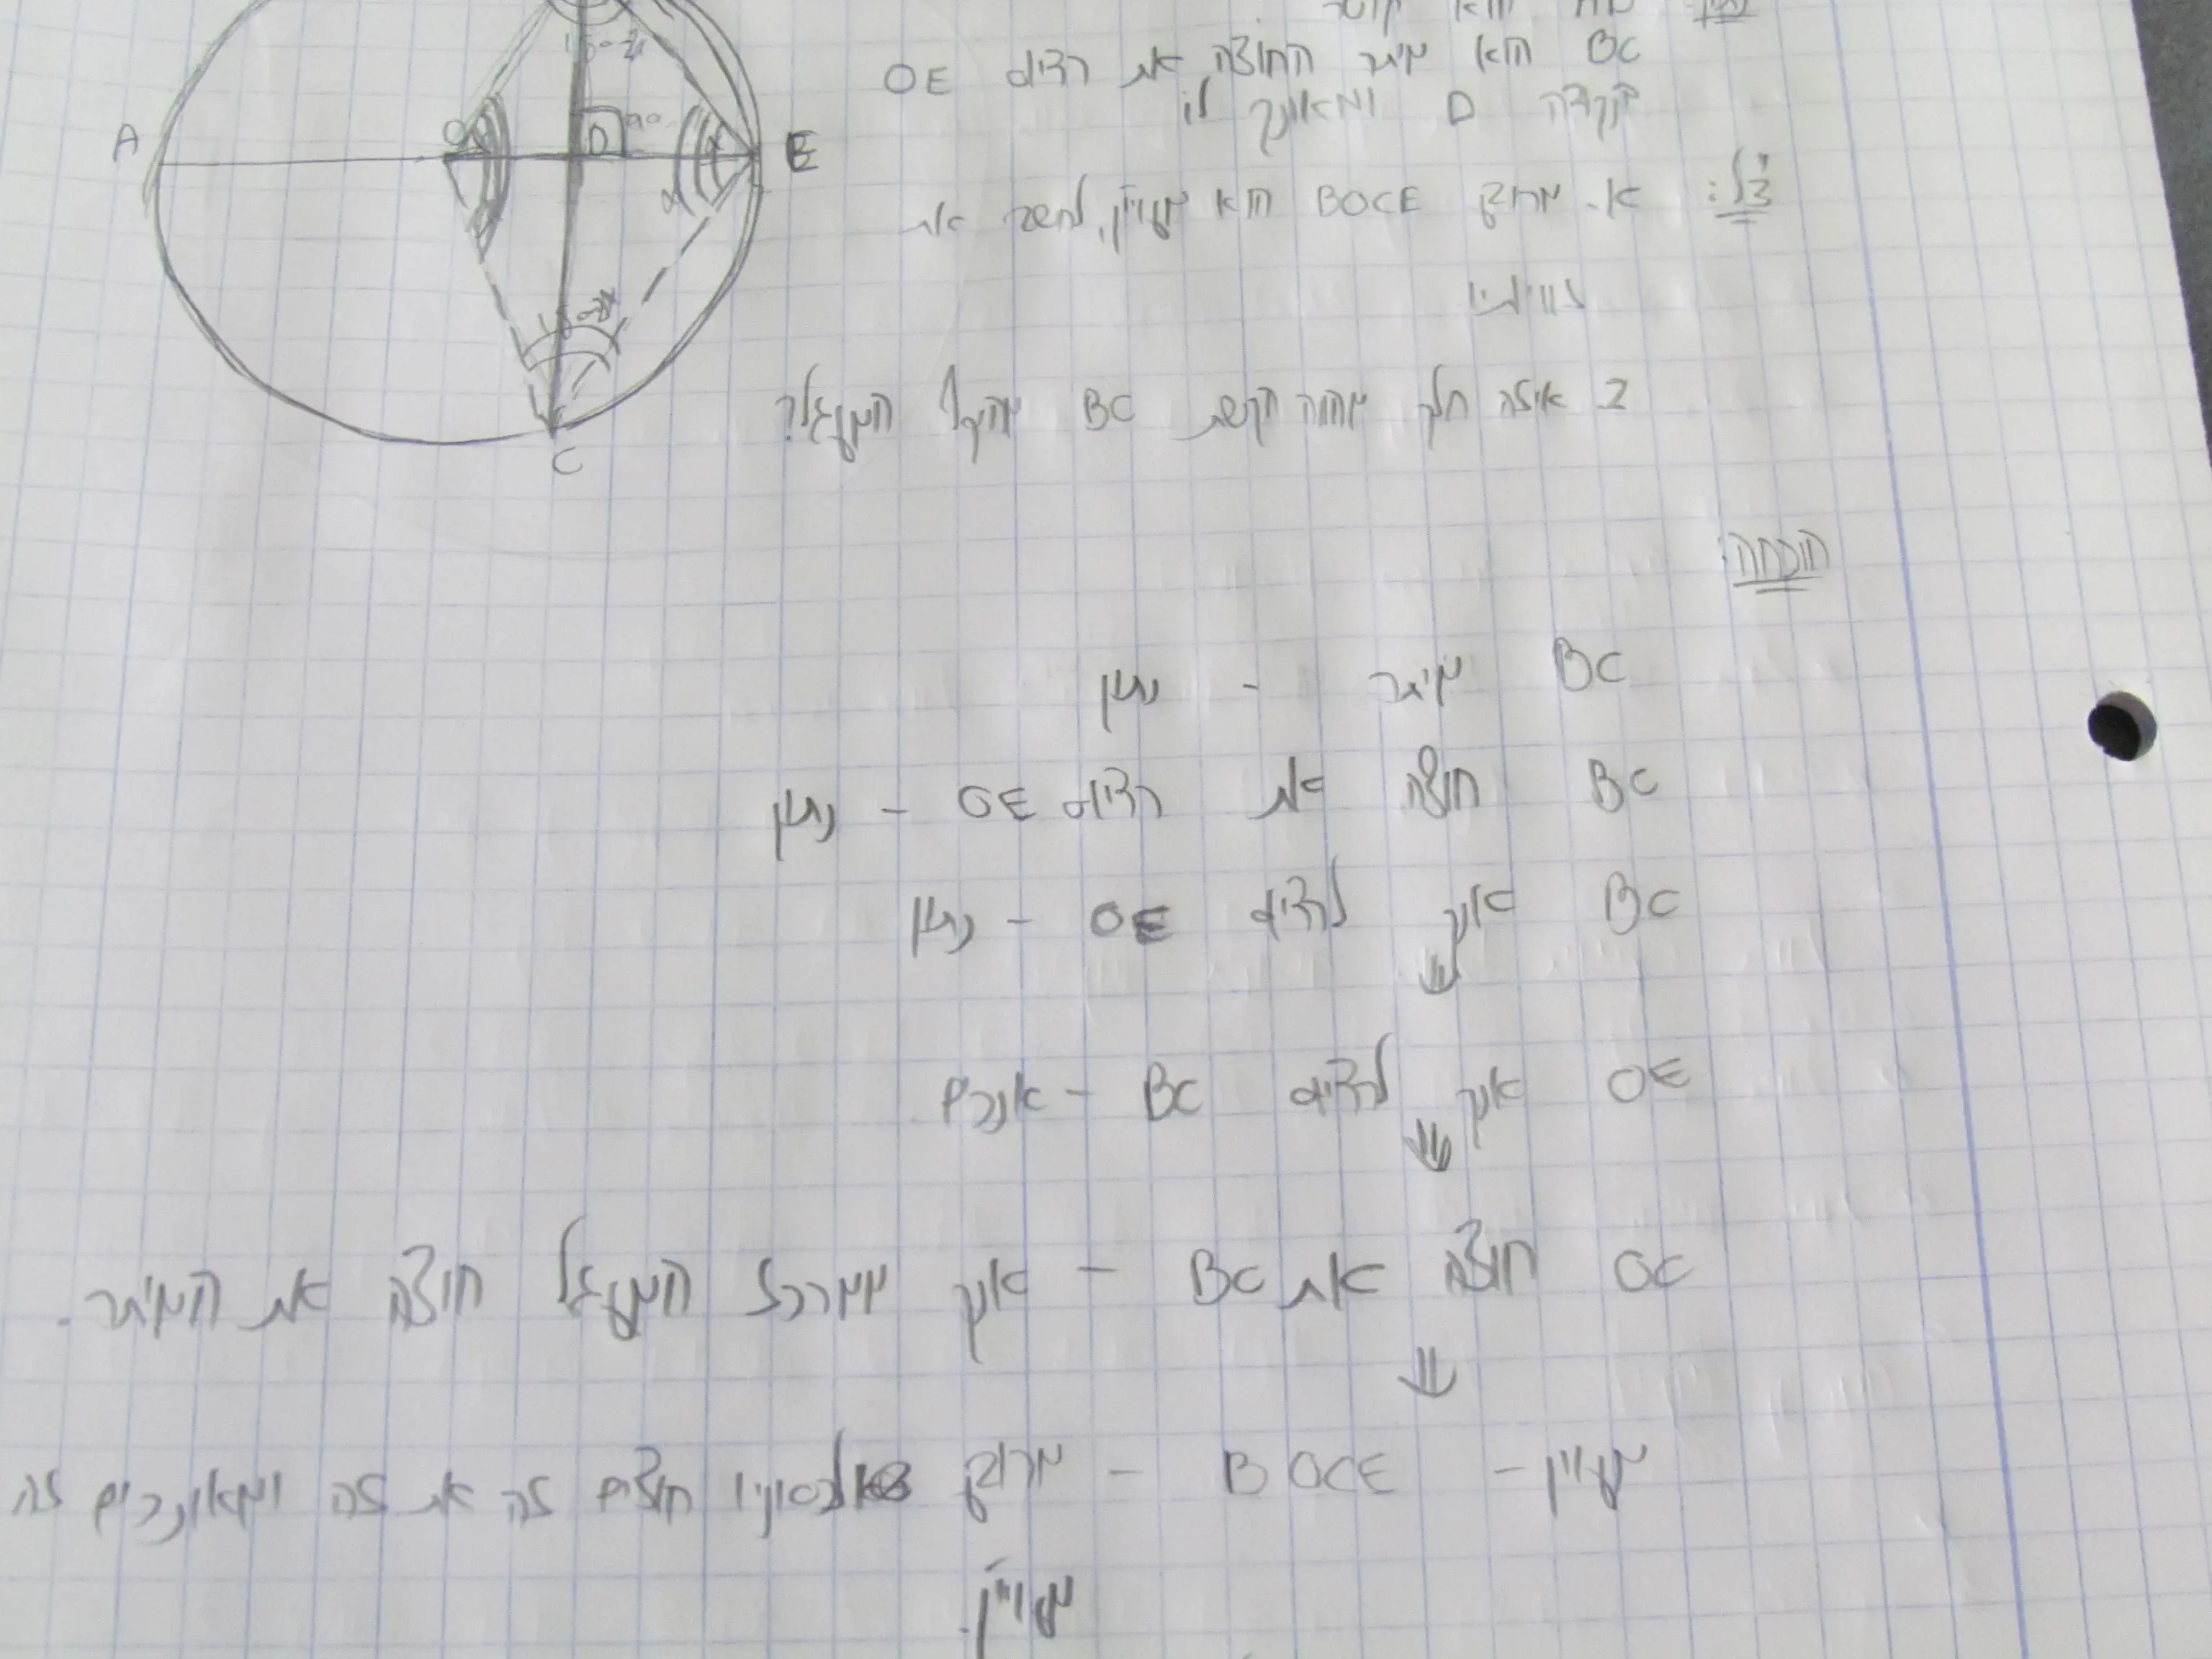 נתון: AE הוא קוטר
BC הוא מיתר החוצה את רדיוס OE
בנקודה D ומאונך לו
צ"ל: א. מרובע BOCE הוא מעויין, לחשב את
זוויותיו
ב. איזה חלק מהווה הקשת BC מהיקף המעגל?
A
O
D
90
E
180-2α
α
α
180-2α
C
הוכחה:
BC מיתר - נתון
BC חוצה את רדיוס OE - נתון
BC אנך לרדיוס OE - נתון
OE אנך לרדיוס BC - אנכים
OC חוצה את BC - אנך ממרכז המעגל חוצה את המיתר.
מעויין - BOCE - מרובע שאלכסוניו חוצים זה את זה ומאונכים זה
מעויין.